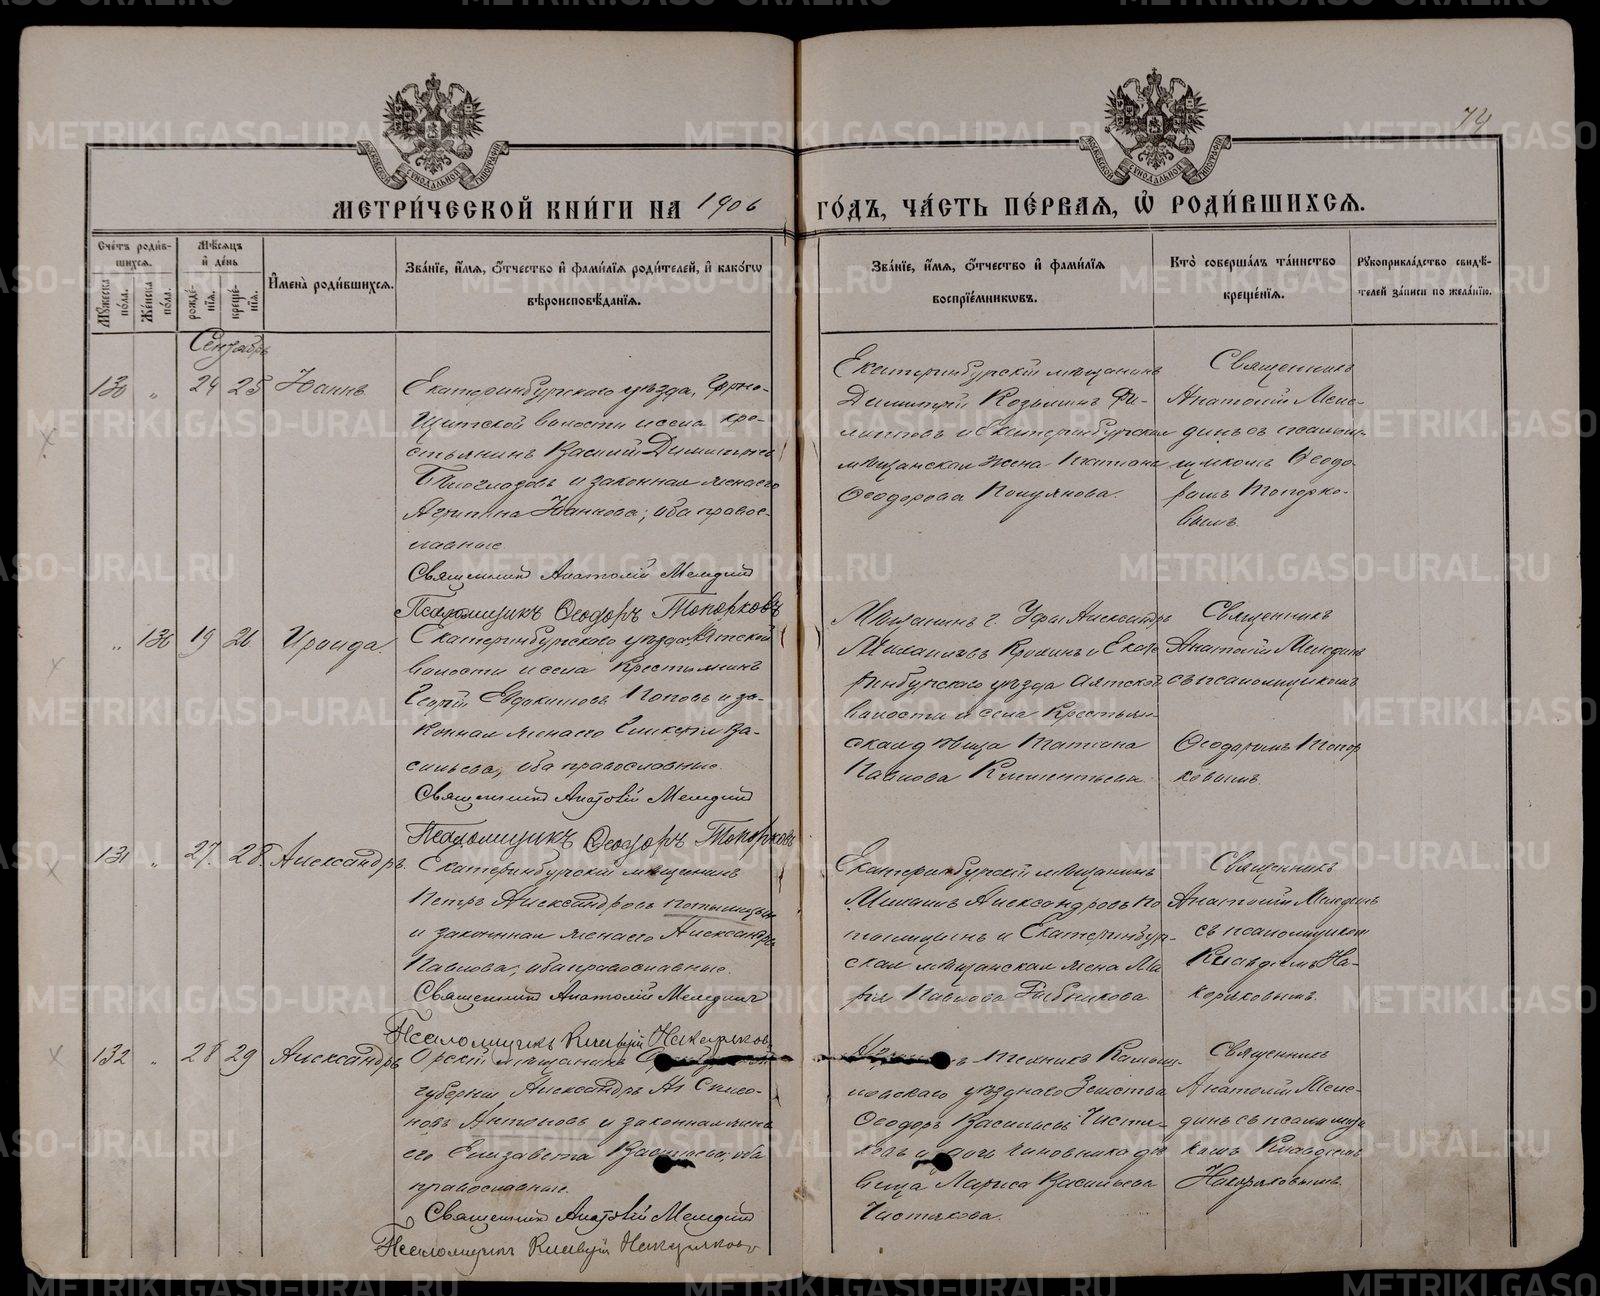 74
МЕТРИ́ЧЕСКОЙ КНИ́ГИ НА 1906 ГО́ДЪ, ЧА́СТЬ ПЕ́РВАЯ, Ѡ҆ РОДИ́ВШИХСЯ.
Сче́тъ роди́вшихся.
Мꙋ́жеска по́ла.
Же́нска по́ла.
Мѣ́сяцъ и҆ де́нь
рожде́нїя.
креще́нїя.
И҆мена̀ роди́вшихся.
Зва́нїе, и҆́мя, ѻ҆́тчество и҆ фами́лїя роди́телей, и҆ како́гѡ вѣроисповѣ́данїя.
Зва́нїе, и҆́мя, ѻ҆́тчество и҆ фами́лїя воспрїе́мникѡвъ.
Кто̀ соверша́лъ та́инство креще́нїя.
Рꙋкоприкла́дство свидѣ́телей за́писи по жела́нїю.
Сентябрь
130 „ 24 25 Іоаннъ
Екатеринбургскаго уѣзда, Горно-
Щитской волости и села кре-
стьянинъ Василій Димитріевъ
и законная жена его
Агрипина Іоаннова; оба право-
славные.
Священникъ Анатолій Меледин
Псаломщикъ Ѳеодоръ Топорковъ
Екатеринбургскій мѣщанинъ
Димитрій Козьминъ Фи-
липповъ и Екатеринбургская
мѣщанская жена Татiана
Ѳеодорова
Священникъ
Анатолій Меле-
динъ съ псалом-
щикомъ Ѳеодо-
ромъ Топорко-
вымъ.
„ 130 19 26 Ираида.
Екатеринбургскаго уѣзда, Аятской
волости и села крестьянинъ
Георгій Евдокимовъ Поповъ и за-
конная жена его Гликерія Ва-
сильева, оба православные.
Священникъ Анатолій Меледин
Псаломщикъ Ѳеодоръ Топорковъ
Мѣщанинъ г. Уфы Александръ
Михаиловъ и Екате-
ринбургскаго уѣзда Аятской
волости и села крестьян-
ская дѣвица Татiана
Павлова Климентьева.
Священникъ
Анатолій Мелединъ
съ псаломщикомъ
Ѳеодоромъ Топор
ковымъ
131 „ 27. 28. Александръ.
Екатеринбургскій мѣщанинъ
Петръ Александровъ
и законная жена его Александра
Павлова; оба православные.
Священникъ Анатолій Мелединъ
Псаломщикъ Клавдій Накоряковъ
Екатеринбургскій мѣщанинъ
Михаилъ Александровъ
и Екатеринбур-
ская мѣщанская жена Ма
рія Павлова Рыбникова
Священникъ
Анатолій Мелединъ
съ псаломщикомъ
Клавдіемъ На-
коряковымъ.
132 „ 28 29 Александръ
Орскій мѣщанинъ
губерніи Александръ
Антоновъ и законная жена
его Елизавета Васильева, оба
православные.
Священникъ Анатолій Меледин
Псаломщикъ Клавдій Накоряковъ
Техникъ Камыш-
ловскаго уѣзднаго Земства
Ѳеодоръ Васильевъ Чистя-
ковъ и дочь чиновника дѣ
вица Лариса Васильева
Чистякова.
Священникъ
Анатолій Меле-
динъ съ псаломщи
комъ Клавдіемъ
Накоряковымъ.
METRIKI.GASO-URAL.RU